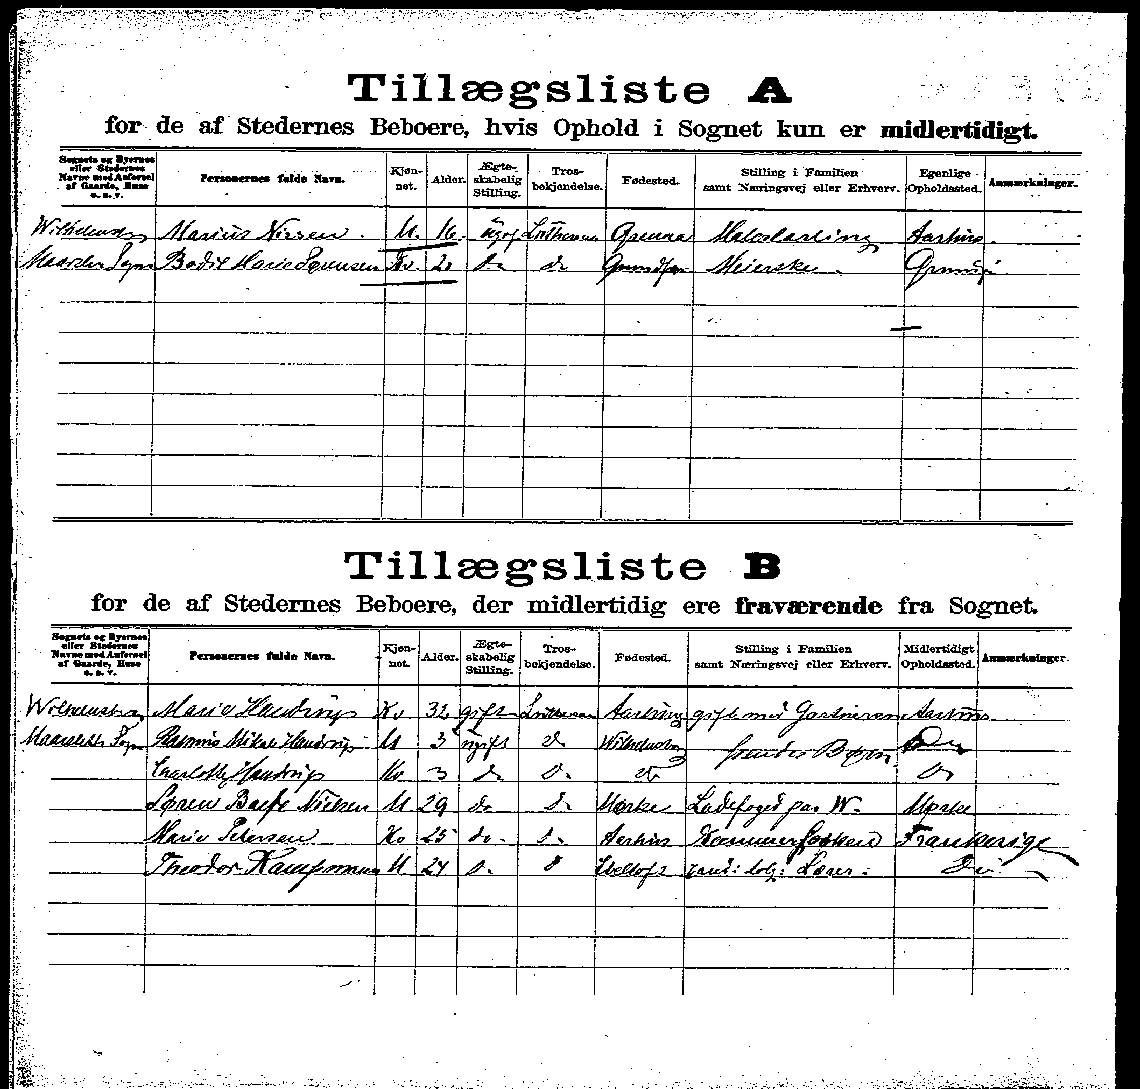 Tillægsliste A
for de af Stedernes Beboere, hvis Ophold i Sognet kun er midlertidigt.
Sognets og Byernes eller Stedernes Navne med Anførsel af Gaarde, Huse o. s. v. Personernes fulde Navn. Kjøn-net. Alder. Ægte-skabelig Stilling. Tros-bekjendelse. Fødested. Stilling i Familien samt Næringsvej eller Erhverv. Egenlige Opholdssted. Anmærkninger.
Marius Nissen M. 16. ugift Grenaa Malerlærling Aarhus.
Sogn Bodil Marie Sørensen Kv 20 do do Meierske
Tillægsliste B
for de af Stedernes Beboere, der midlertidig ere fraværende fra Sognet.
Sognets og Byernes eller Stedernes Navne med Anførsel af Gaarde, Huse o. s. v. Personernes fulde Navn. Kjøn-net. Alder. Ægte-skabelig Stilling. Tros-bekjendelse. Fødested. Stilling i Familien samt Næringsvej eller Erhverv. Midlertidigt Opholdssted. Anmærkninger.
Marie Haudrup Kv 32 gift Aarhus gift med Gartneren Aarhus
Sogn Rasmus Mikal Haudrup M 3 ugift do Børn do
Charlotte Haudrup Kv 3 do do do do
Søren Nielsen M 29 do do Mørke Ladefoged paa W. Mørke
Marie Petersen Kv 25 do do Aarhus Frankerige
Theodor Kampmann M 24 do do Ebeltoft Lærer do